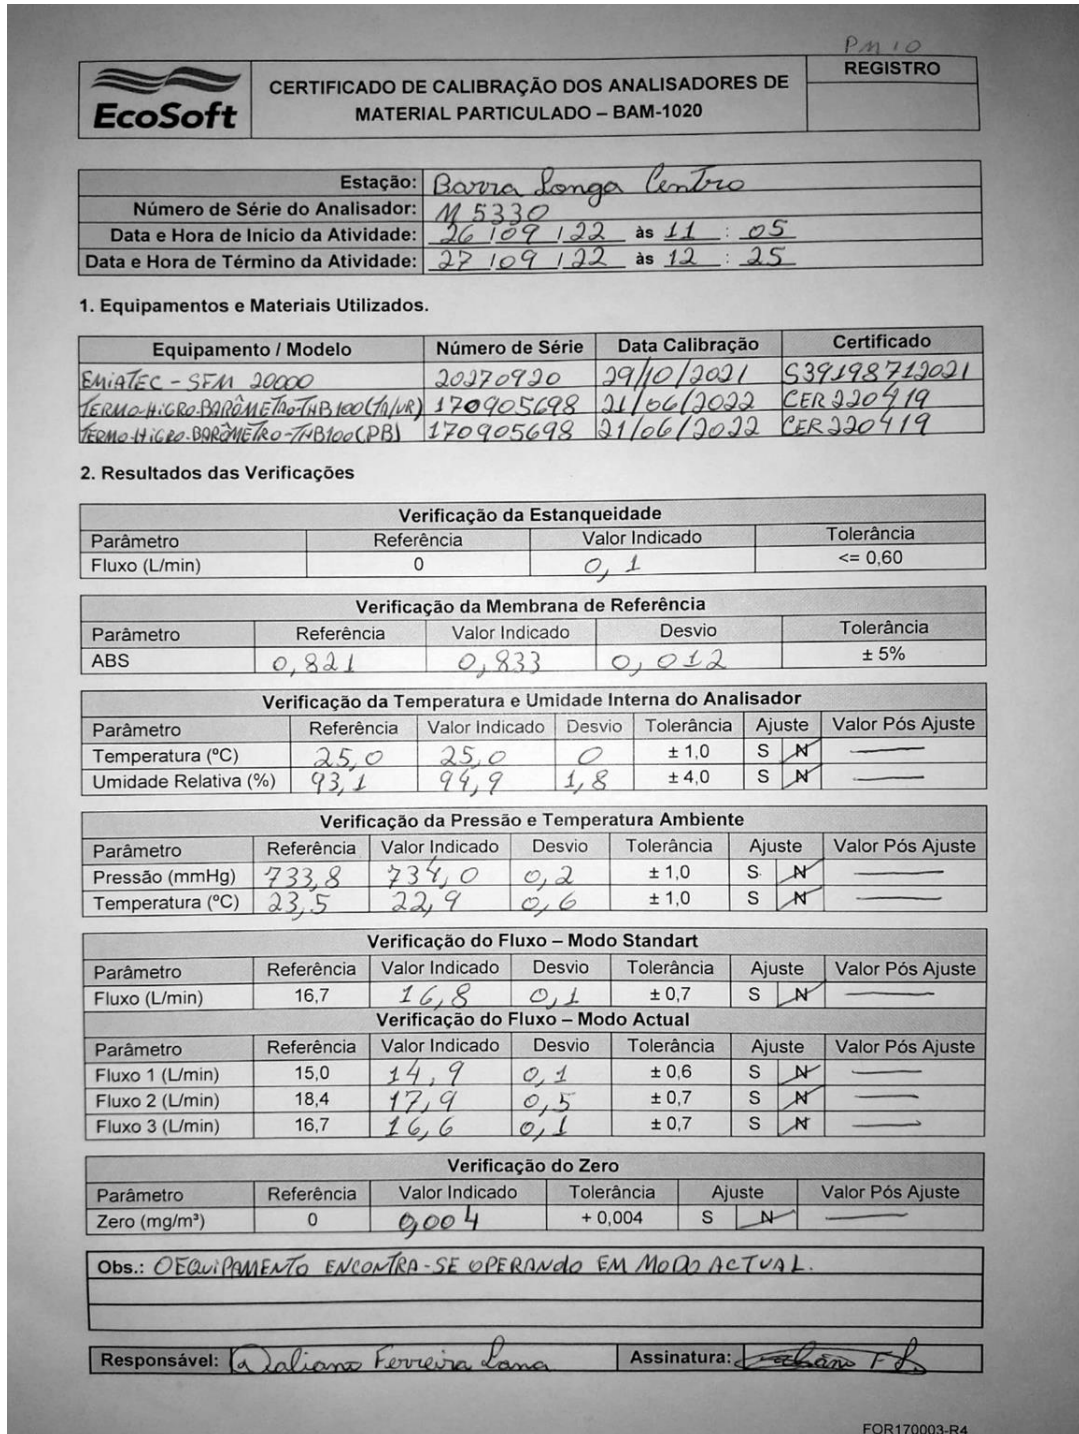 PM10
REGISTRO
EcoSoft
CERTIFICADO DE CALIBRAÇÃO DOS ANALISADORES DE
MATERIAL PARTICULADO – BAM-1020
Estação: Barra Longa Centro
Número de Série do Analisador: M 5330
Data e Hora de Início da Atividade: 26/09/22 às 11 : 05
Data e Hora de Término da Atividade: 27/09/22 às 12 : 25
1. Equipamentos e Materiais Utilizados.
Equipamento / Modelo Número de Série Data Calibração Certificado
EMiATEC - SFM 20000 20270920 29/10/2021 S39198712021
TERMO-HiGRO-BARÔMETRO-THB100(TA/UR) 170905698 21/06/2022 CER220419
TERMO-HiGRO-BARÔMETRO-THB100(PB) 170905698 21/06/2022 CER220419
2. Resultados das Verificações
Verificação da Estanqueidade
Parâmetro Referência Valor Indicado Tolerância
Fluxo (L/min) 0 0,1 <= 0,60
Verificação da Membrana de Referência
Parâmetro Referência Valor Indicado Desvio Tolerância
ABS 0,821 0,833 0,012 ± 5%
Verificação da Temperatura e Umidade Interna do Analisador
Parâmetro Referência Valor Indicado Desvio Tolerância Ajuste Valor Pós Ajuste
Temperatura (ºC) 25,0 25,0 0 ± 1,0 S N
Umidade Relativa (%) 93,1 94,9 1,8 ± 4,0 S N
Verificação da Pressão e Temperatura Ambiente
Parâmetro Referência Valor Indicado Desvio Tolerância Ajuste Valor Pós Ajuste
Pressão (mmHg) 733,8 734,0 0,2 ± 1,0 S N
Temperatura (ºC) 23,5 22,9 0,6 ± 1,0 S N
Verificação do Fluxo – Modo Standart
Parâmetro Referência Valor Indicado Desvio Tolerância Ajuste Valor Pós Ajuste
Fluxo (L/min) 16,7 16,8 0,1 ± 0,7 S N
Verificação do Fluxo – Modo Actual
Parâmetro Referência Valor Indicado Desvio Tolerância Ajuste Valor Pós Ajuste
Fluxo 1 (L/min) 15,0 14,9 0,1 ± 0,6 S N
Fluxo 2 (L/min) 18,4 17,9 0,5 ± 0,7 S N
Fluxo 3 (L/min) 16,7 16,6 0,1 ± 0,7 S N
Verificação do Zero
Parâmetro Referência Valor Indicado Tolerância Ajuste Valor Pós Ajuste
Zero (mg/m³) 0 0,004 + 0,004 S N
Obs.: O EQUIPAMENTO ENCONTRA-SE OPERANDO EM MODO ACTUAL.
Responsável: Ferreira Lana Assinatura:
FOR170003-R4